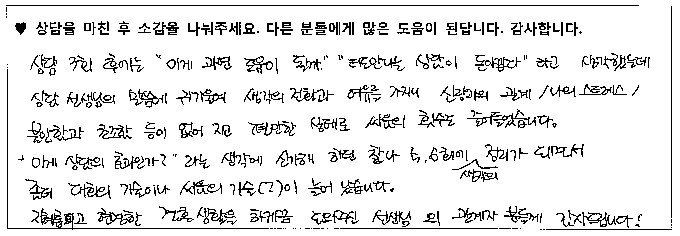 ♥ 상담을 마친 후 소감을 나눠주세요. 다른 분들에게 많은 도움이 된답니다. 감사합니다.
상담 3회 후까지는 "이게 과연 도움이 될까" " 상담이 " 라고 생각했는데
상담 선생님의 말씀에 귀기울여 생각의 전환과 여유를 가지니 신랑과의 관계 / 나의 스트레스 /
불안함과 초조함 등이 없어 지고 편안한 상태로 싸움의 횟수도 줄어들었습니다.
"이게 상담의 효과인가?" 라는 생각에 신기해 하던 찰나 5, 6회에 생각의 정리가 되면서
대화의 기술이나 싸움의 기술(?)이 늘어 났습니다.
지혜롭고 현명한 결혼 생활을 하게끔 도와주신 선생님 외 관계자 분들께 감사드립니다!